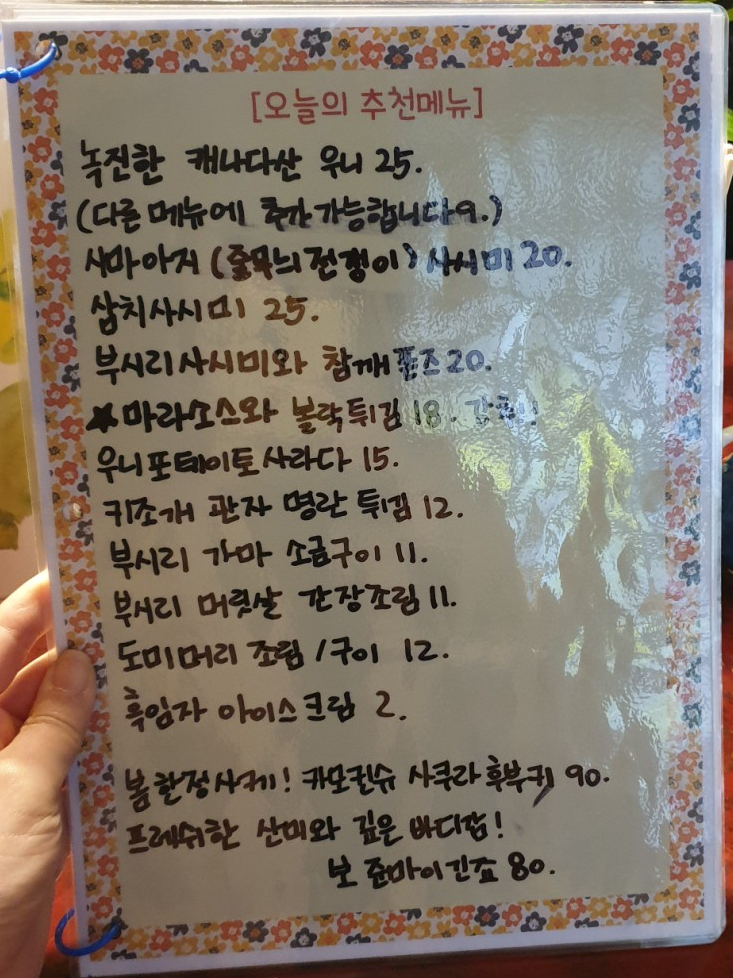 [오늘의 추천메뉴]
녹진한 캐나다산 우니 25.
(다른 메뉴에 추가 가능합니다9.)
시마아지 (줄무늬전갱이) 사시미 20.
삼치사시미 25.
부시리사시미와 참깨폰즈20.
★마라소스와 볼락튀김 18.
우니포테이토사라다 15.
키조개 관자 명란 튀김 12.
부시리 가마 소금구이 11.
부시리 머릿살 간장조림 11.
도미머리 조림/구이 12.
흑임자 아이스크림 2.
봄한정사케! 카모킨슈 사쿠라후부키 90.
프레쉬한 산미와 깊은 바디감!
보 쥰마이긴죠 80.